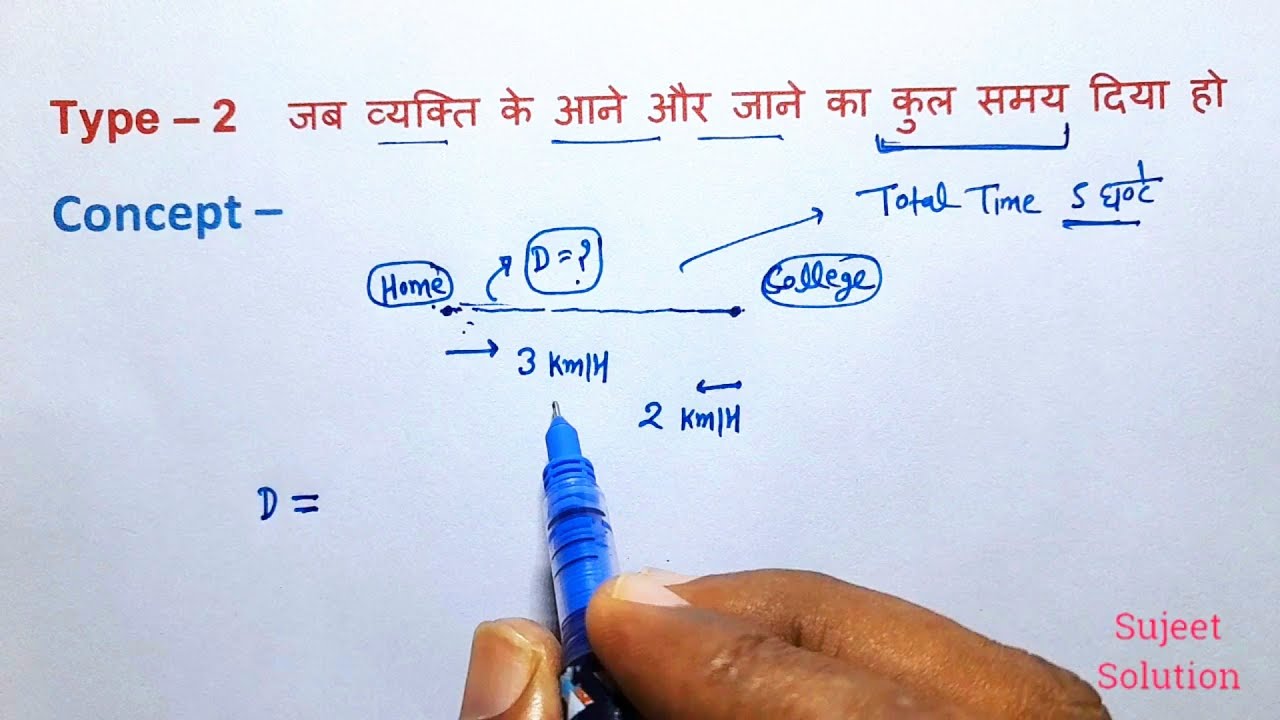 Type – 2 जब व्यक्ति के आने और जाने का कुल समय दिया हो
Concept –
Total Time 5 घण्टे
Home
D = ?
College
3 Km/H
2 Km/H
D =
Sujeet
Solution